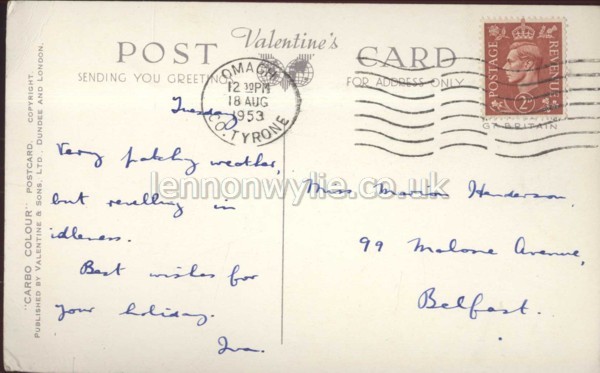 POST Valentine's CARD
SENDING YOU GREETINGS FOR ADDRESS ONLY
OMAGH
12 30 PM
18 AUG
1953
CO. TYRONE
POSTAGE REVENUE
2D
GT BRITAIN
Tuesday
Very patchy weather,
but revelling in
idleness.
Best wishes for
your holiday.
Iva.
Miss Marion Henderson,
99 Malone Avenue,
Belfast.
"CARBO COLOUR" POSTCARD. COPYRIGHT.
PUBLISHED BY VALENTINE & SONS, LTD., DUNDEE AND LONDON.
lennonwylie.co.uk